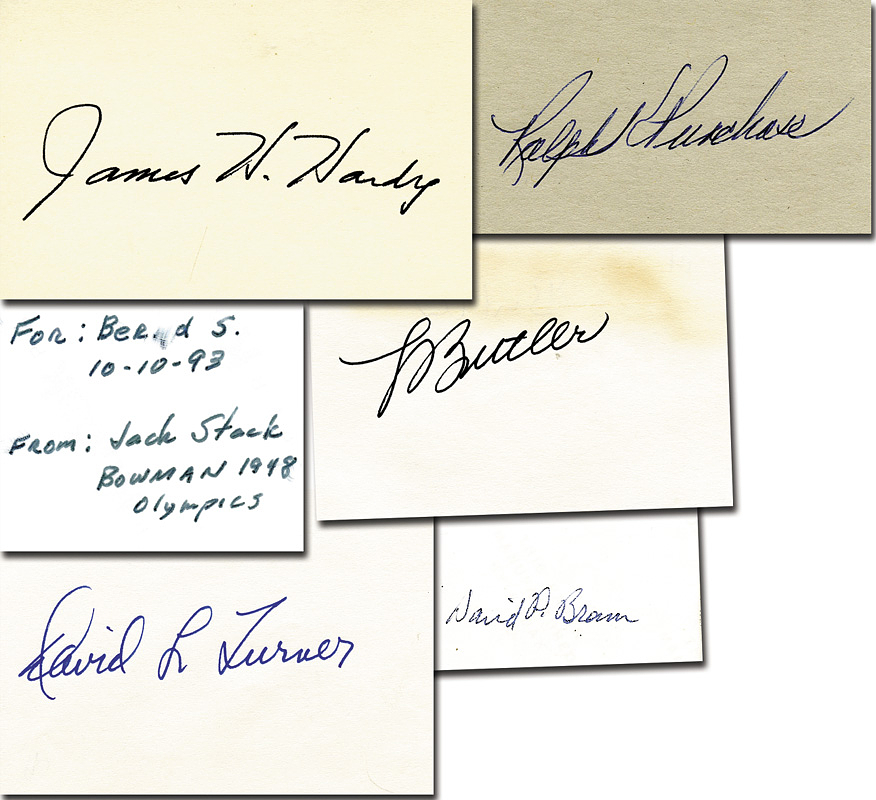 James H. Hardy
Ralph Purchase
For: Bernd S.
10-10-93
From: Jack Stack
BOWMAN 1948
Olympics
L Butler
David L Turner
David P. Brown